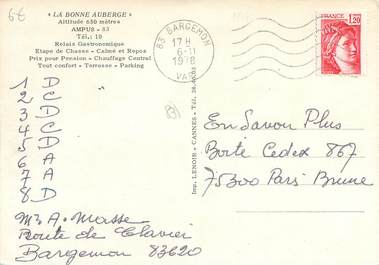 6€
« LA BONNE AUBERGE »
Altitude 650 mètres
AMPUS - 83
Tél.: 10
Relais Gastronomique
Etape de Chasse - Calme et Repos
Prix pour Pension - Chauffage Central
Tout confort - Terrasse - Parking
83 BARGEMON
17 H
6-11
1978
VAR
1,20
1 D
2 C
3 D
4 C
5 D
6 A
7 A
8 D
83
Imp. LENOIR - CANNES - Tél.
En Savoir Plus
Boite Cedex 867
75300 Paris Brune
A. Masse
Route de Clavier
Bargemon 83620